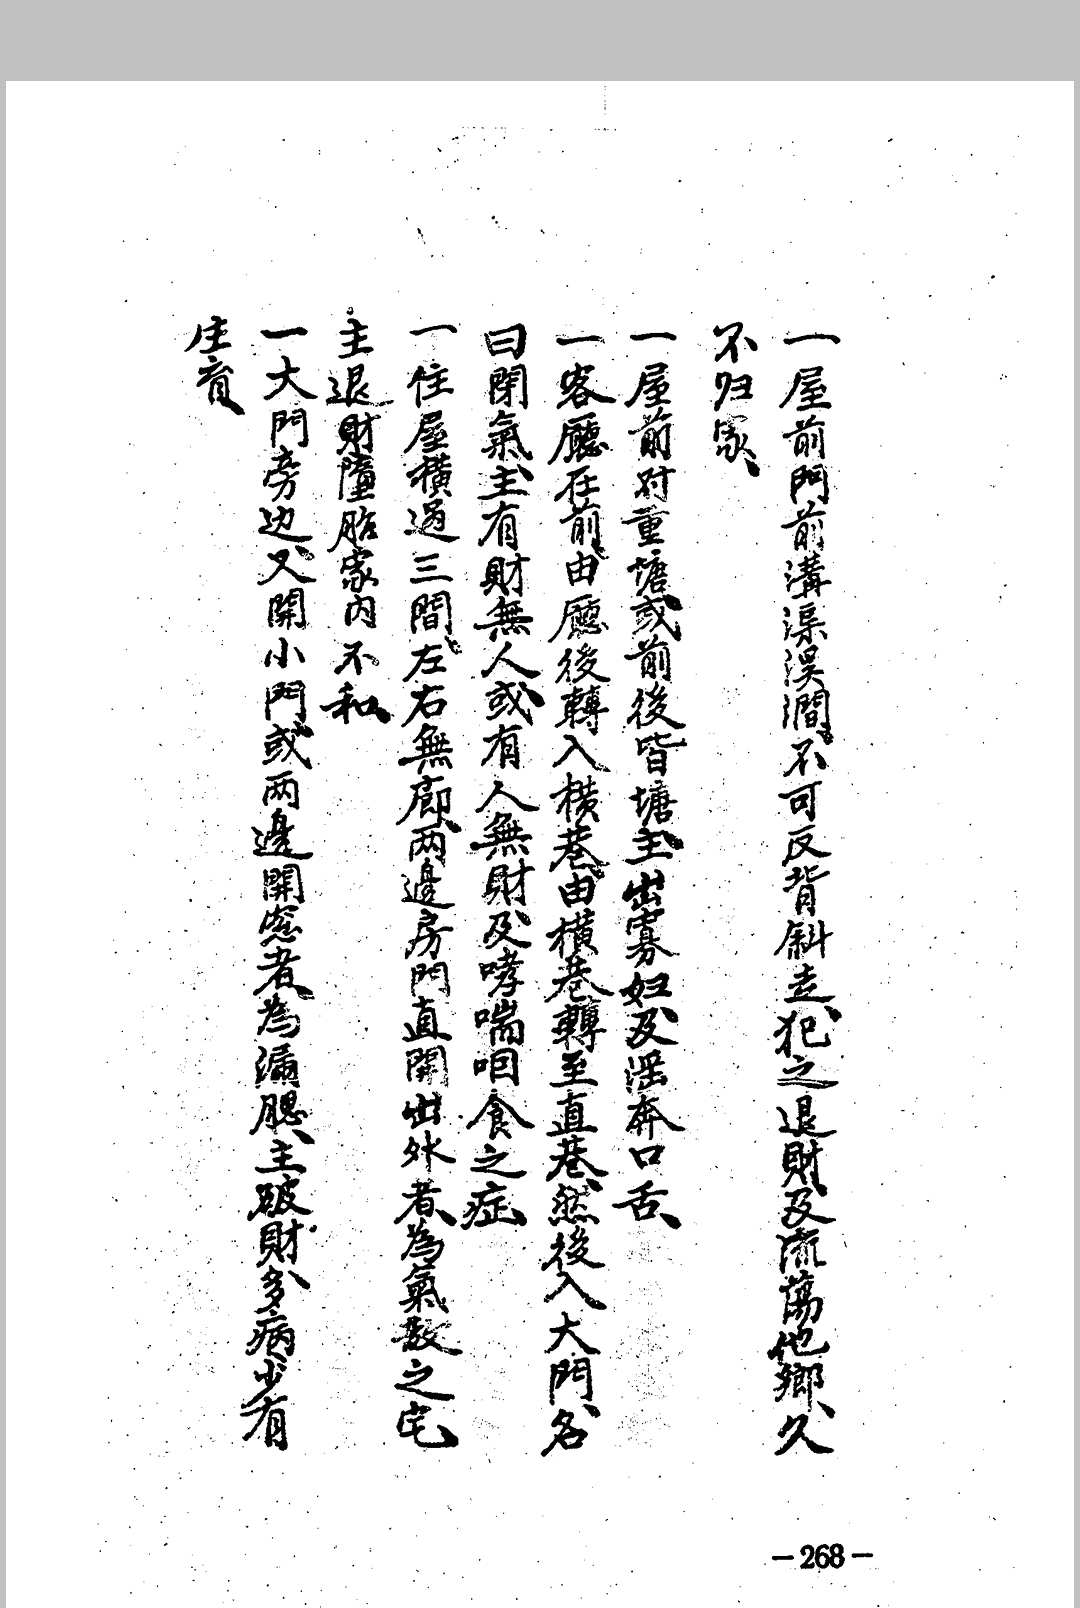 一屋前門前溝渠溪澗、不可反背斜走、犯之退財、及流蕩他鄉、久
不归家、
一屋前对重塘、或前後皆塘、主出寡妇、及淫奔口舌、
一客廳在前、由廳後轉入橫巷、由橫巷轉至直巷、然後入大門、名
曰閉氣、主有財無人、或有人無財、及哮喘咽食之症、
一住屋橫過三間、左右無廊、两邊房門直開出外者、為氣散之宅、
主退財墮胎家内不和、
一大門旁边、又開小門、或两邊開窓者、為漏腮、主破財、多病少有
生育、
－268－